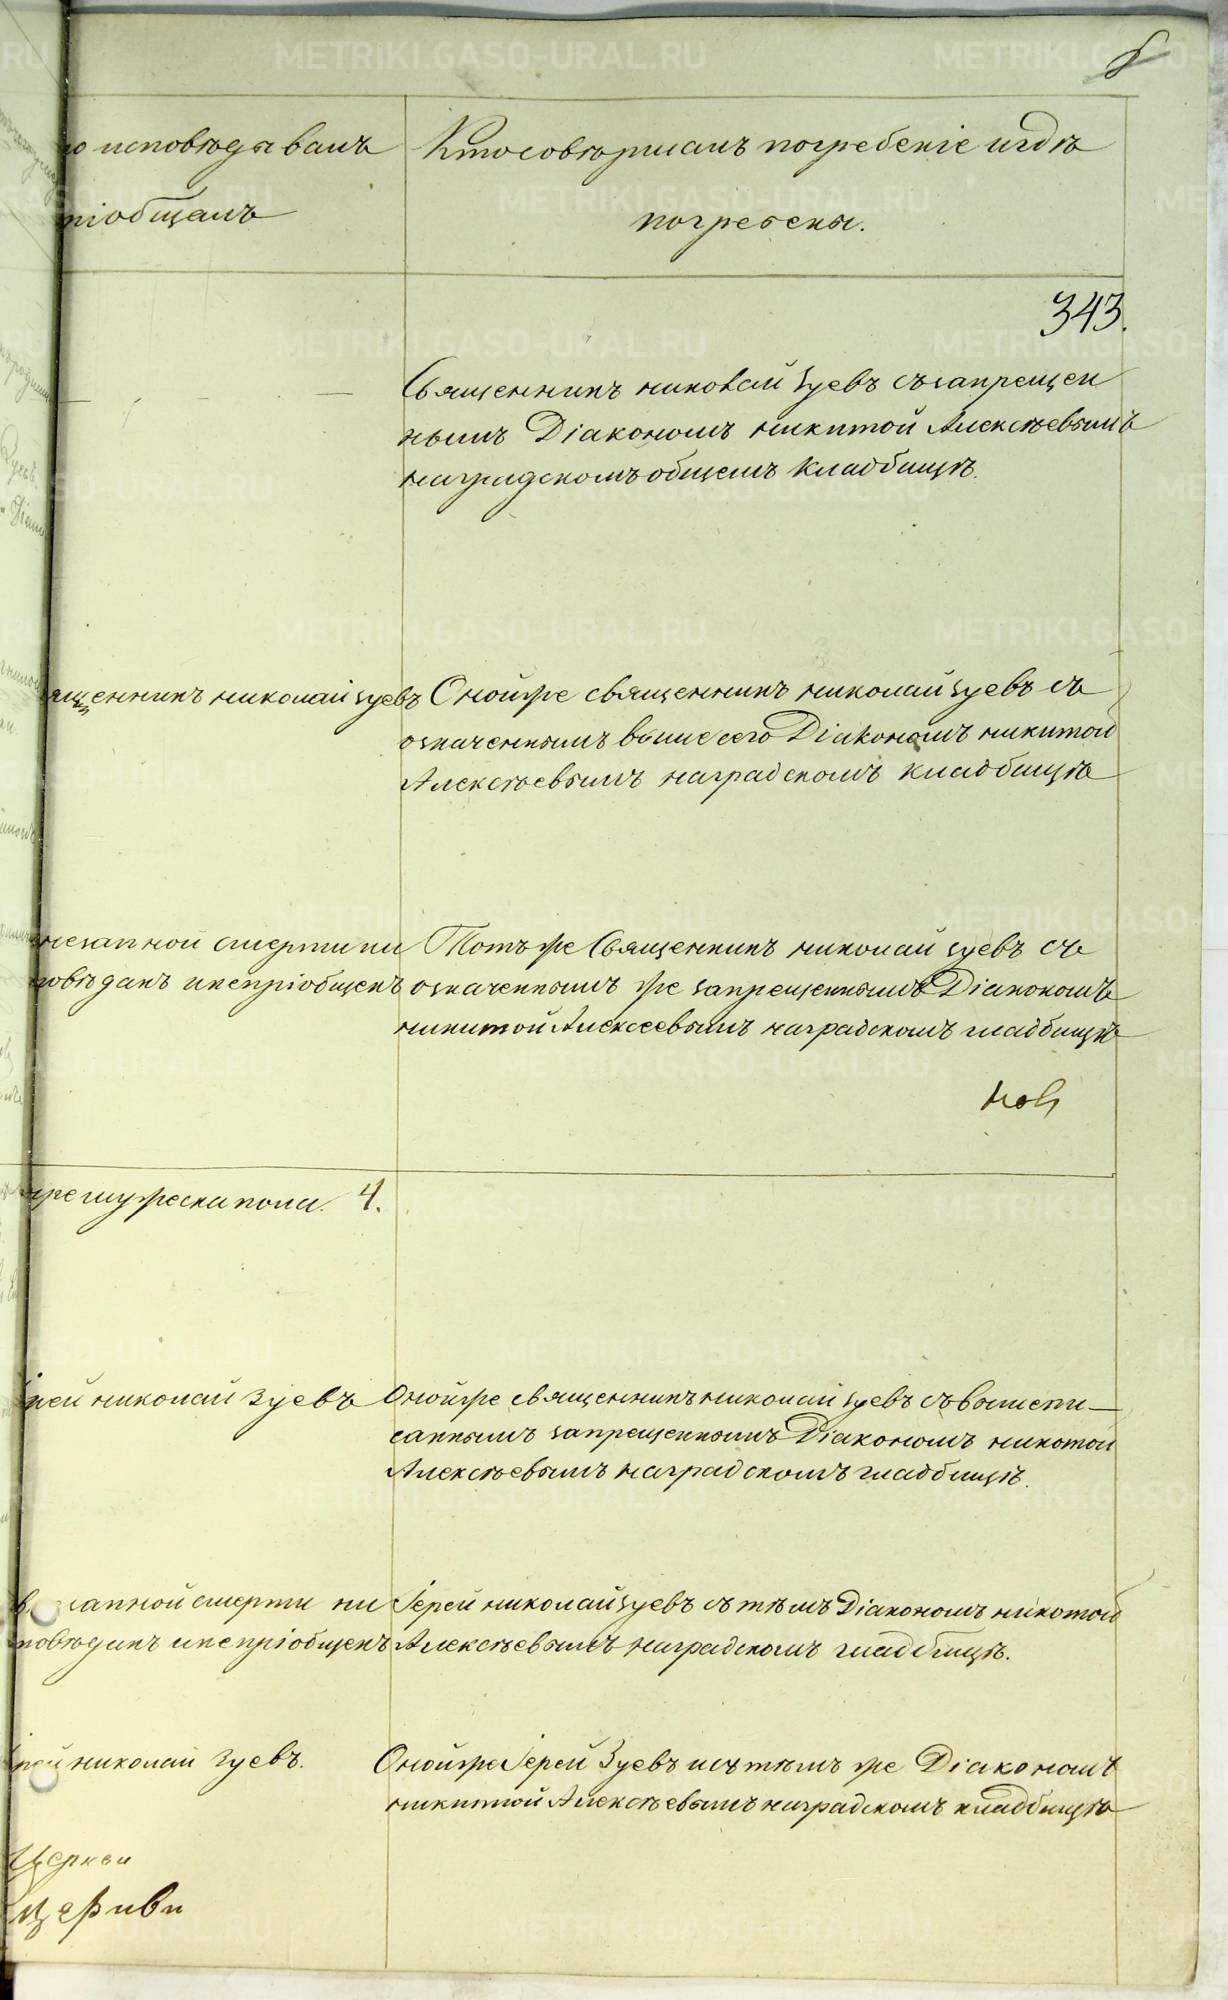 го исповѣдывалъ
ріобщалъ
Кто совѣршалъ погребеніе и гдѣ
погребены.
343.
Священникъ николай Зуевъ съ запрещен
нымъ Діакономъ никитой Алексѣевымъ
на градскомъ общемъ кладбищѣ.
ященникъ николай Зуевъ
Оной же священникъ николай Зуевъ съ
означеннымъ выше сего Діакономъ никитой
Алексѣевымъ на градскомъ кладбищѣ
незапной смерти ни
повѣданъ и непріобщенъ
Тотъ же Священникъ николай Зуевъ съ
означеннымъ же запрещеннымъ Діакономъ
никитой Алексеевымъ на градскомъ кладбищѣ
мужеска пола. 4.
рей николай Зуевъ
Оной же священникъ николай Зуевъ съ вышепи–
саннымъ запрещеннымъ Діакономъ никитой
Алексѣевымъ на градскомъ кладбищѣ.
незапной смерти ни
повѣданъ и непріобщенъ
Іерей николай Зуевъ съ тѣмъ Діакономъ никитой
Алексѣевымъ на градскомъ кладбищѣ.
рей николай Зуевъ.
Оной же Іерей Зуевъ и съ тѣмъ же Діакономъ
никитой Алексѣевымъ на градскомъ кладбищѣ
Церкви
церкви
METRIKI.GASO-URAL.RU